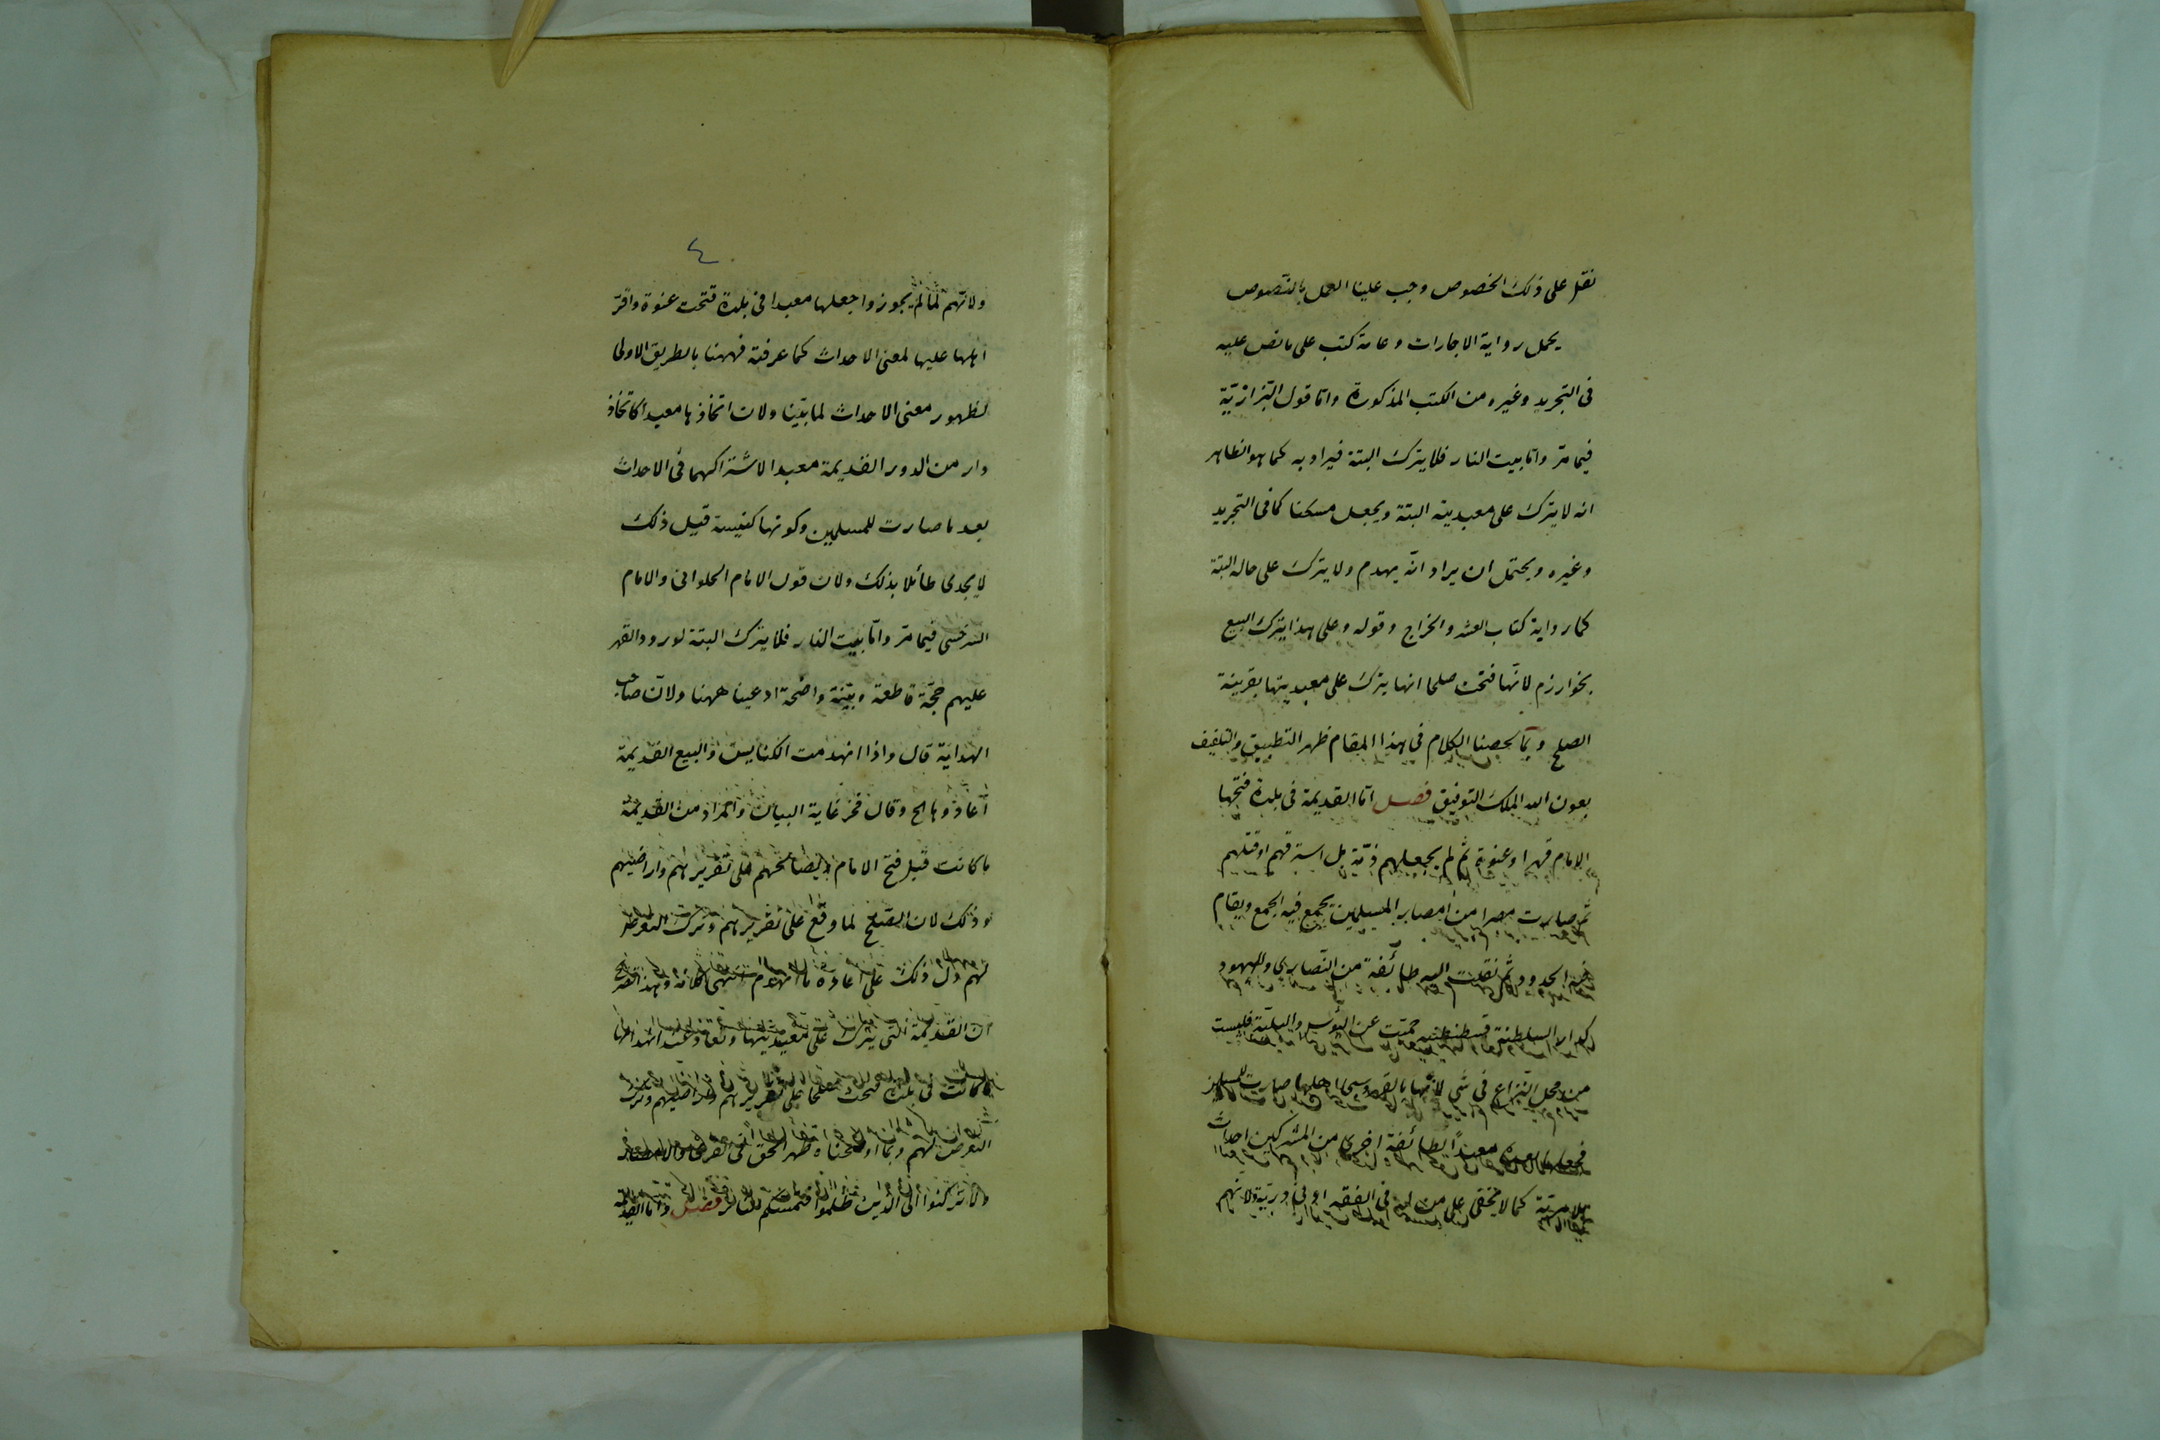 نقل على ذلك الخصوص وجب علينا العمل بالنصوص
يحمل رواية الاجارات وعامة كتب على ما نص عليه
فى التجريد وغيره من الكتب المذكورة واما قول البزازية
فيما مرّ واما بيت النار فلا يترك البتة فيراد به كما هو الظاهر
انه لا يترك على معبديته البتة ويجعل مسكنا كما فى التجريد
وغيره ويحتمل ان يراد انّه يهدم ولا يترك على حاله البتة
كما رواية كتاب العشر والخراج وقوله وعلى هذا يترك البيع
بخوارزم لانّها فتحت صلحا انها يترك على معبديتها بقرينة
الصلح وبما لخصنا الكلام فى هذا المقام ظهر التطبيق والتلفيق
بعون الله الملك التوفيق فصل اما القديمة فى بلدة فتحها
الامام قهرا وعنوة ثم لم يجعلهم ذمّة بل استرقهم او قتلهم
ثم صارت مصرا من امصار المسلمين يجمع فيه الجمع ويقام
فيه الحدود ثم نقلت اليه طائفة من النصارى واليهود
كدار السلطنة قسطنطنيه حميت عن البؤس والبليّة فليست
من محل النزاع فى شئ لانها بالقهر وسبى اهلها صارت للمسلمين
فجعلها بعده معبداً لطائفة اخرى من المشركين احداث
بلا مرية كما لا يخفى على من له فى الفقه ادنى دريّة ولانهم
٤
ولانّهم لما لم يجوزوا جعلها معبدا فى بلدة فتحت عنوة واقرّ
اهلها عليها لمعنى الاحداث كما عرفته فههنا بالطريق الاولى
لظهور معنى الاحداث لما بيّنا ولان اتخاذها معبدا كاتخاذ
دار من الدور القديمة معبدا لاشتراكهما فى الاحداث
بعد ما صارت للمسلمين وكونها كنيسة قبل ذلك
لا يجدى طائلا بذلك ولان قول الامام الحلوانى والامام
السرخسى فيما مرّ وامّا بيت النار فلا يترك البتة لورود القهر
عليهم حجّة قاطعة وبيّنة واضحة ادعينا ههنا ولانّ صاحب
الهداية قال واذا انهدمت الكنايس والبيع القديمة
اعادوها الخ وقال فى غاية البيان والمراد من القديمة
ما كانت قبل فتح الامام ومصالحتهم على تقريرهم واراضيهم
وذلك لان الصلح لما وقع على تقريرهم وترك التعرض
لهم دل ذلك على اعادة ما انهدم انتهى كلامه وهذا
ان القديمة التى يترك على معبديتها وتعاد عند انهدامها
ما كانت فى بلدة فتحت صلحا على تقريرهم واراضيهم وترك
التعرض لهم وبما اوضحناه ظهر الحق
ولا تركنوا الى الذين ظلموا فتمسكم النار فصل واما القديمة